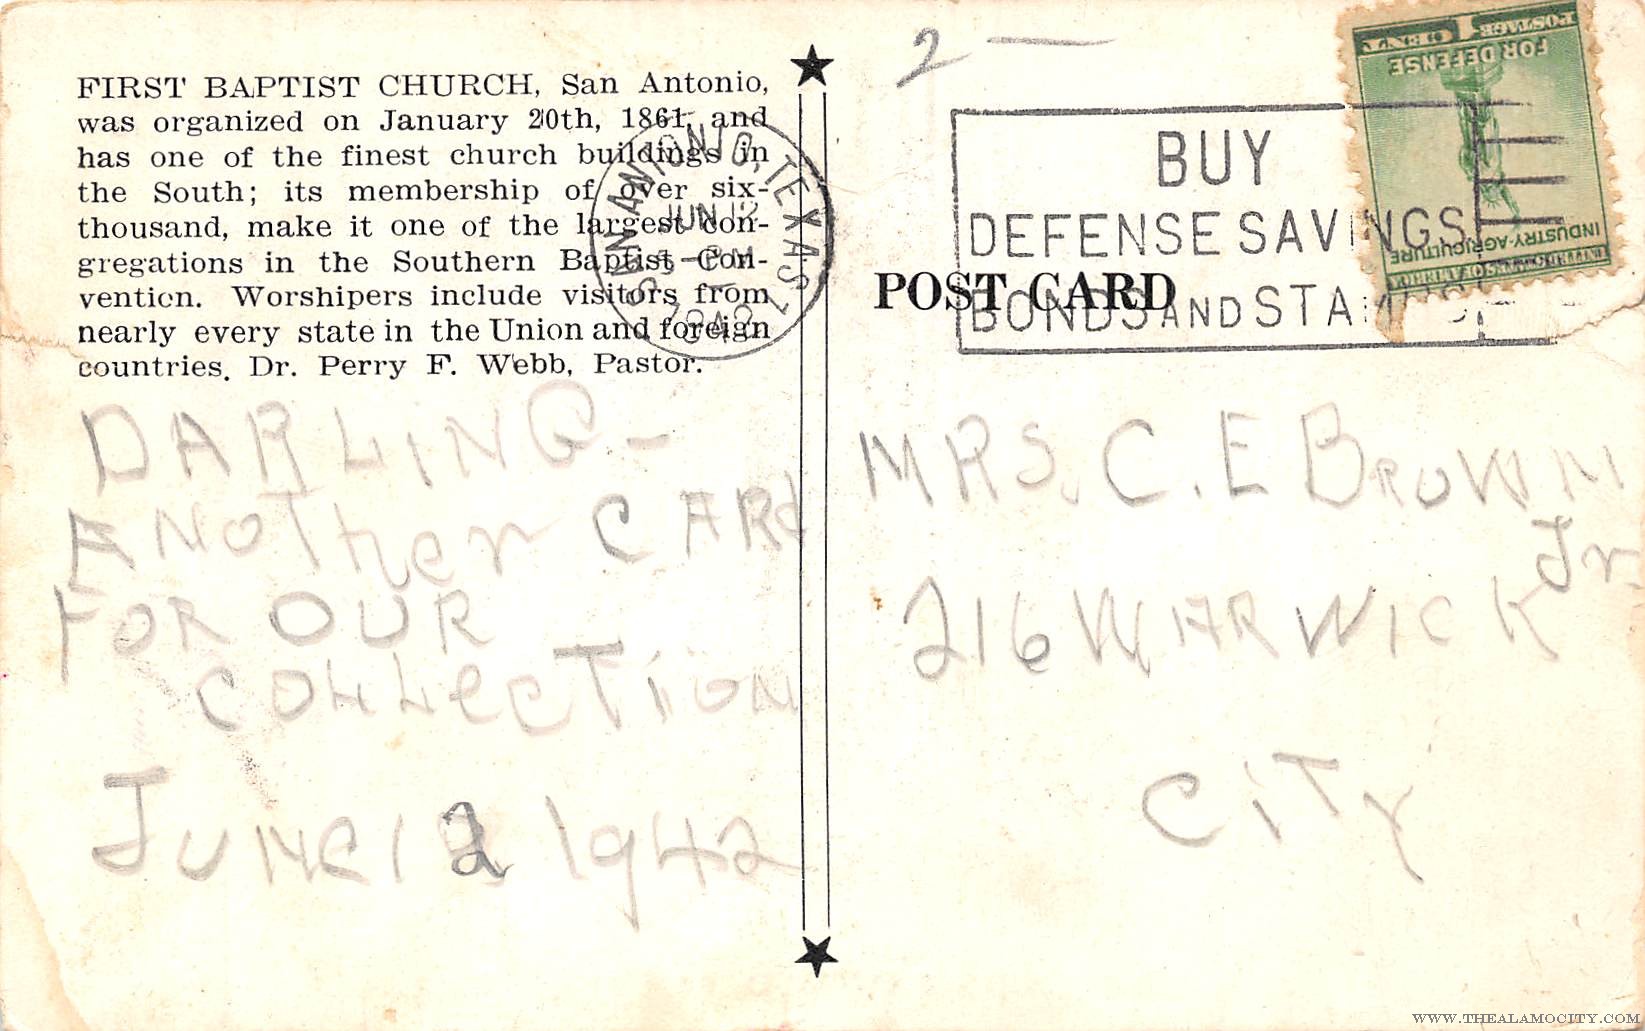 FIRST BAPTIST CHURCH, San Antonio,
was organized on January 20th, 1861, and
has one of the finest church buildings in
the South; its membership of over six-
thousand, make it one of the largest con-
gregations in the Southern Baptist Con-
vention. Worshipers include visitors from
nearly every state in the Union and foreign
countries. Dr. Perry F. Webb, Pastor.
SAN ANTONIO, TEXAS
JUN 12
PM
1942
DARLING -
ANOTHER CARD
FOR OUR
COLLECTION
JUNE 12 1942
2 —
BUY
DEFENSE SAVINGS
BONDS AND STAMPS
POST CARD
1 CENT
POSTAGE
FOR DEFENSE
INDUSTRY-AGRICULTURE
MRS. C. E BROWN
Jr
216 WARWICK
CITY
WWW.THEALAMOCITY.COM